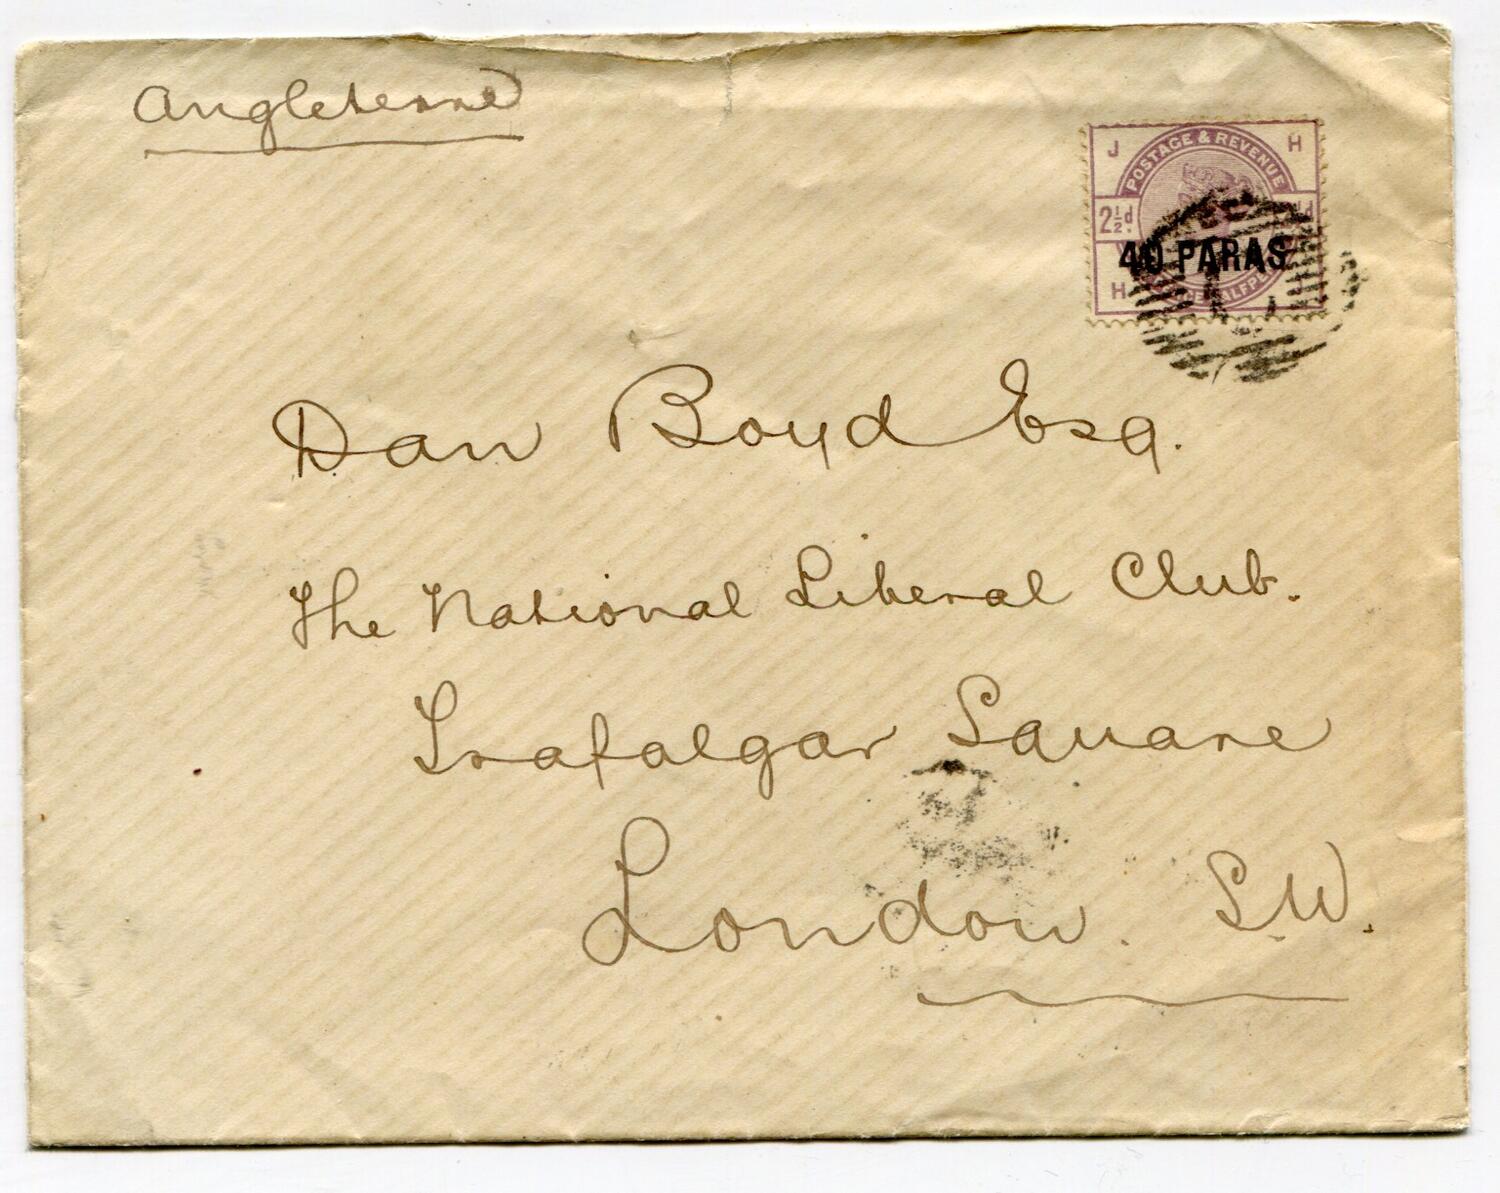 Angleterre
J H
POSTAGE & REVENUE
2½d
40 PARAS
H
Dan Boyd Esq.
The National Liberal Club.
Trafalgar Square
London. S.W.